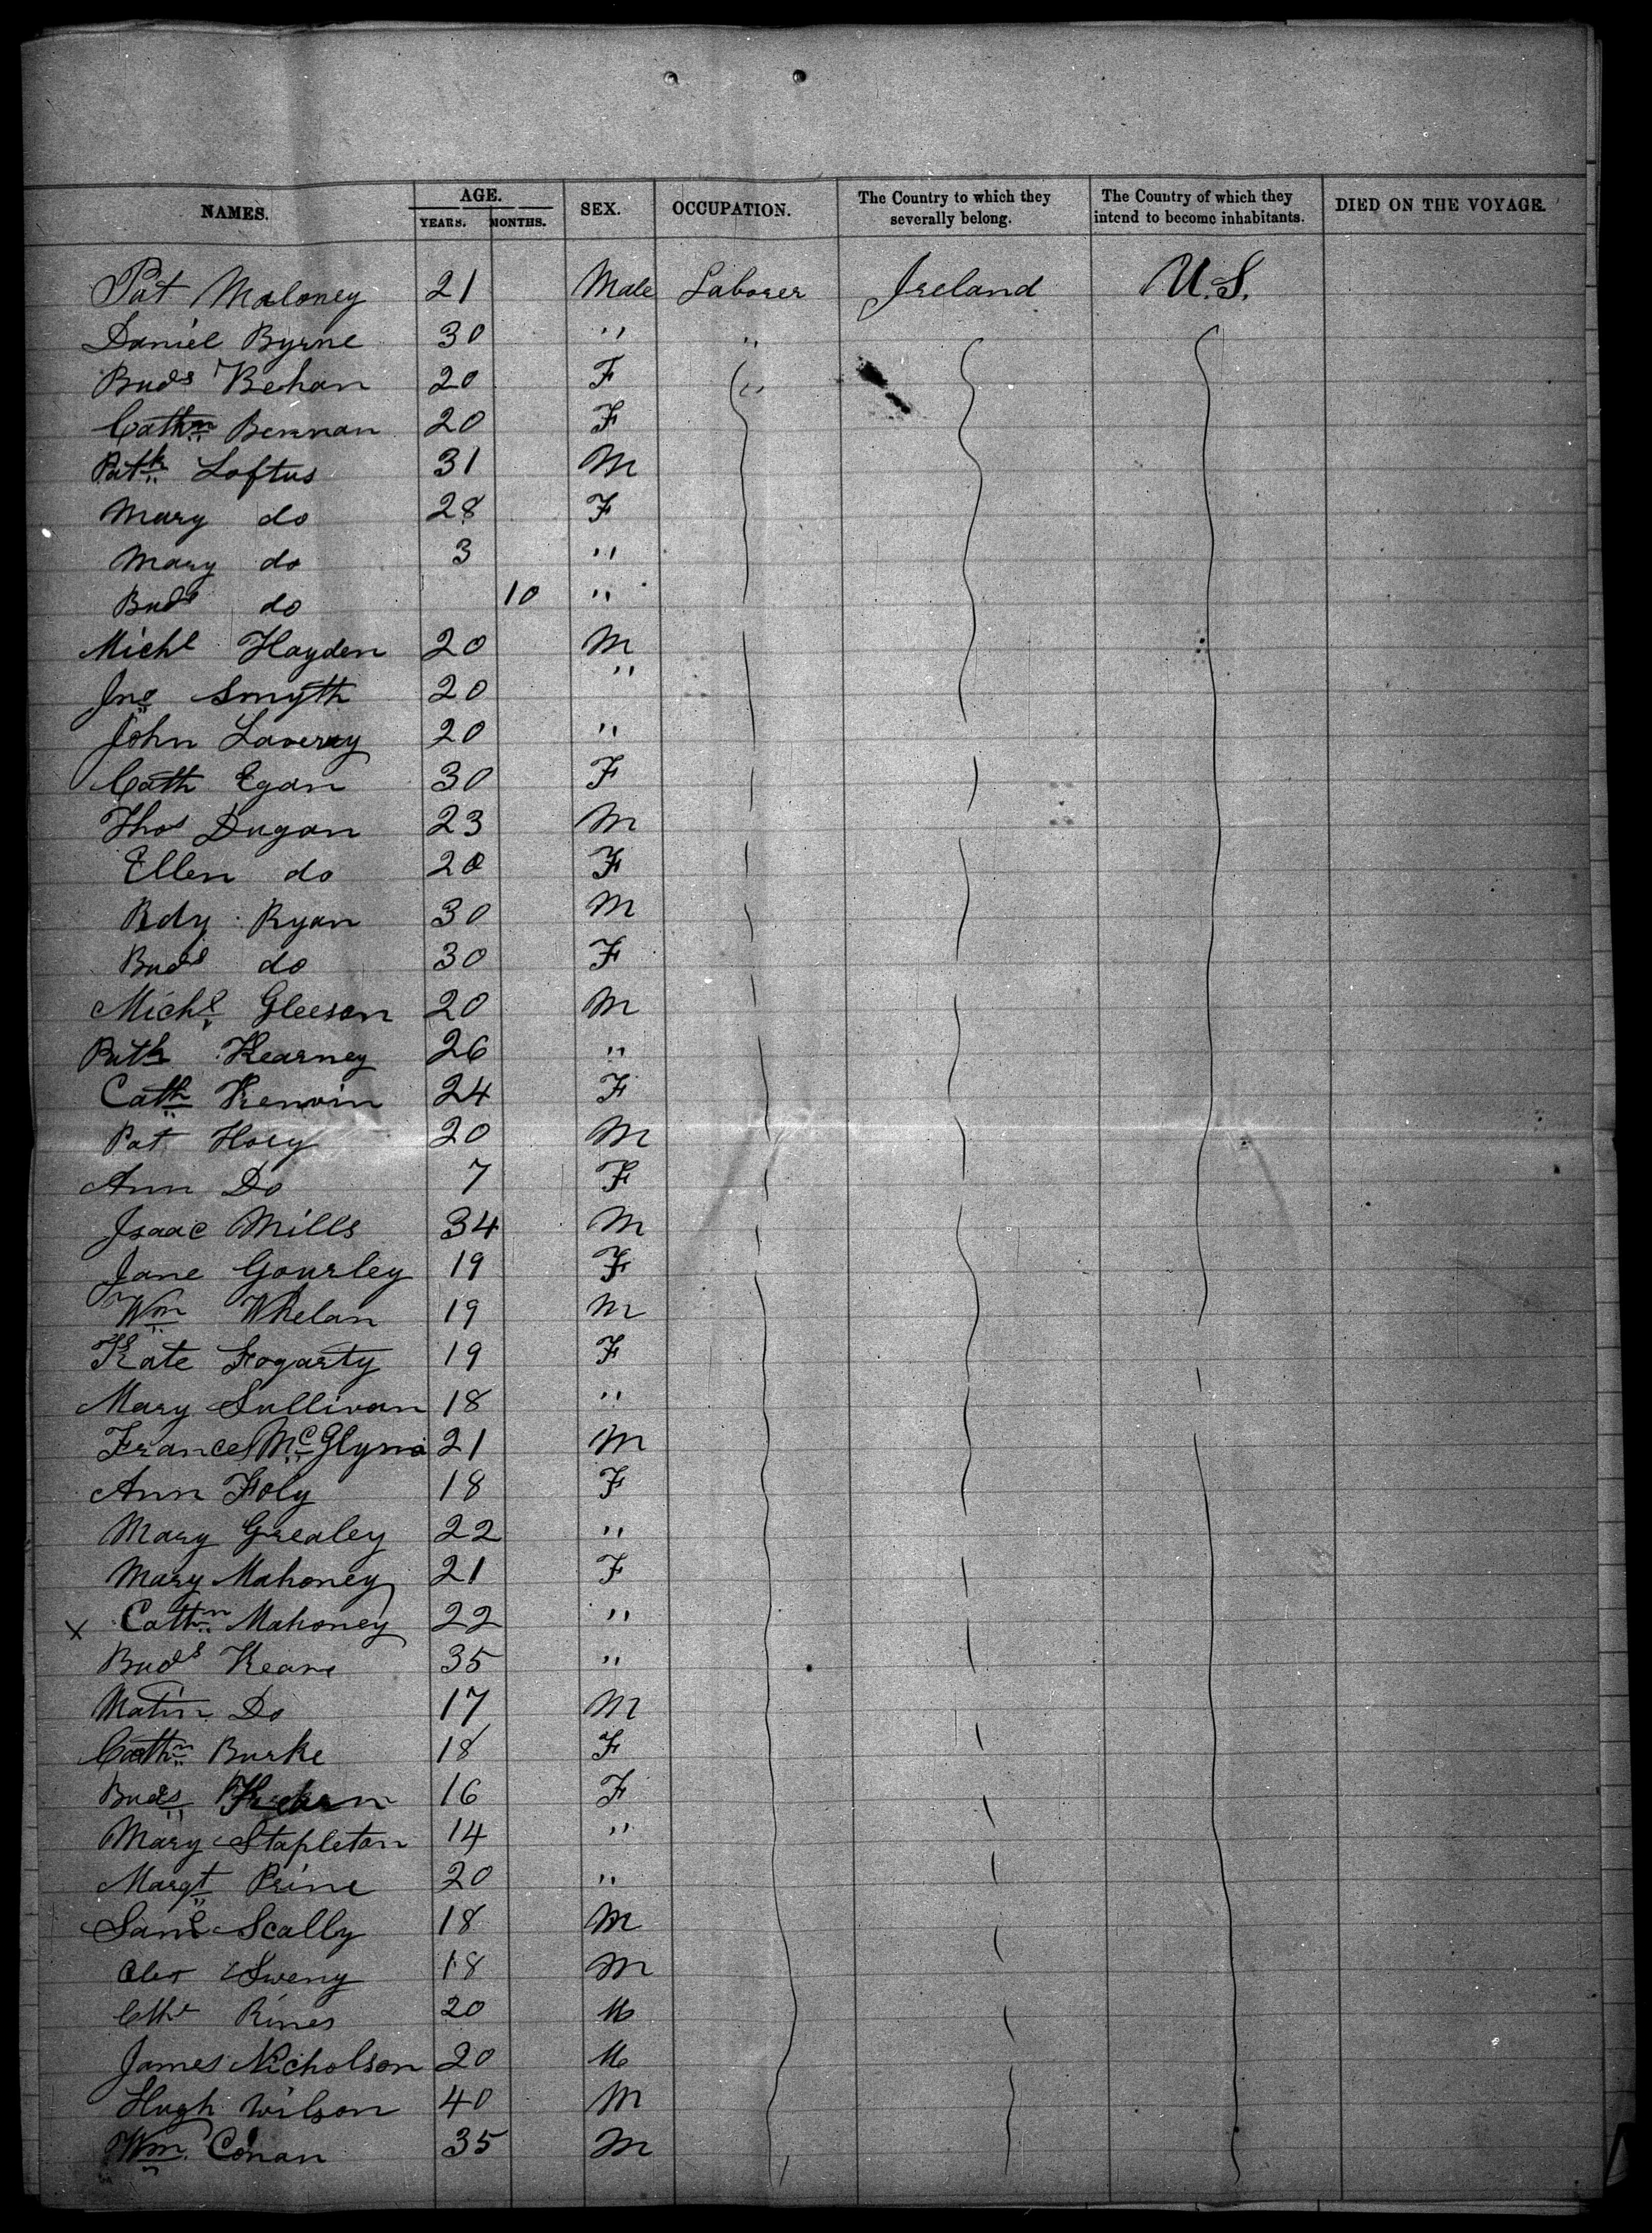 NAMES. AGE. SEX. OCCUPATION. The Country to which they severally belong. The Country of which they intend to become inhabitants. DIED ON THE VOYAGE.
YEARS. MONTHS.
Pat Maloney 21 Male Laborer Ireland U.S.
Daniel Byrne 30 " "
Buds Behan 20 F "
Cathn Bennan 20 F
Patk Loftus 31 M
Mary do 28 F
Mary do 3 "
Buds do 10 "
Michl Hayden 20 M
Jno Smyth 20 "
John Laverey 20 "
Cath Egan 30 F
Thos Dugan 23 M
Ellen do 20 F
Rdy Ryan 30 M
Buds do 30 F
Michl Gleeson 20 M
Patk Kearney 26 "
Cath 24 F
Pat Hoey 20 M
Ann Do 7 F
Isaac Mills 34 M
Jane Gourley 19 F
Wm Whelan 19 M
Kate Fogarty 19 F
Mary Sullivan 18 "
Frances McGlynn 21 M
Ann Foly 18 F
Mary Grealey 22 "
Mary Mahoney 21 F
x Cathn Mahoney 22 "
Buds Keane 35 "
Matin Do 17 M
Cathn Burke 18 F
Buds 16 F
Mary Stapleton 14 "
Margt Prine 20 "
Saml Scally 18 M
Sweny 18 M
Rines 20 M
James Nicholson 20 M
Hugh Wilson 40 M
Wm. Conan 35 M